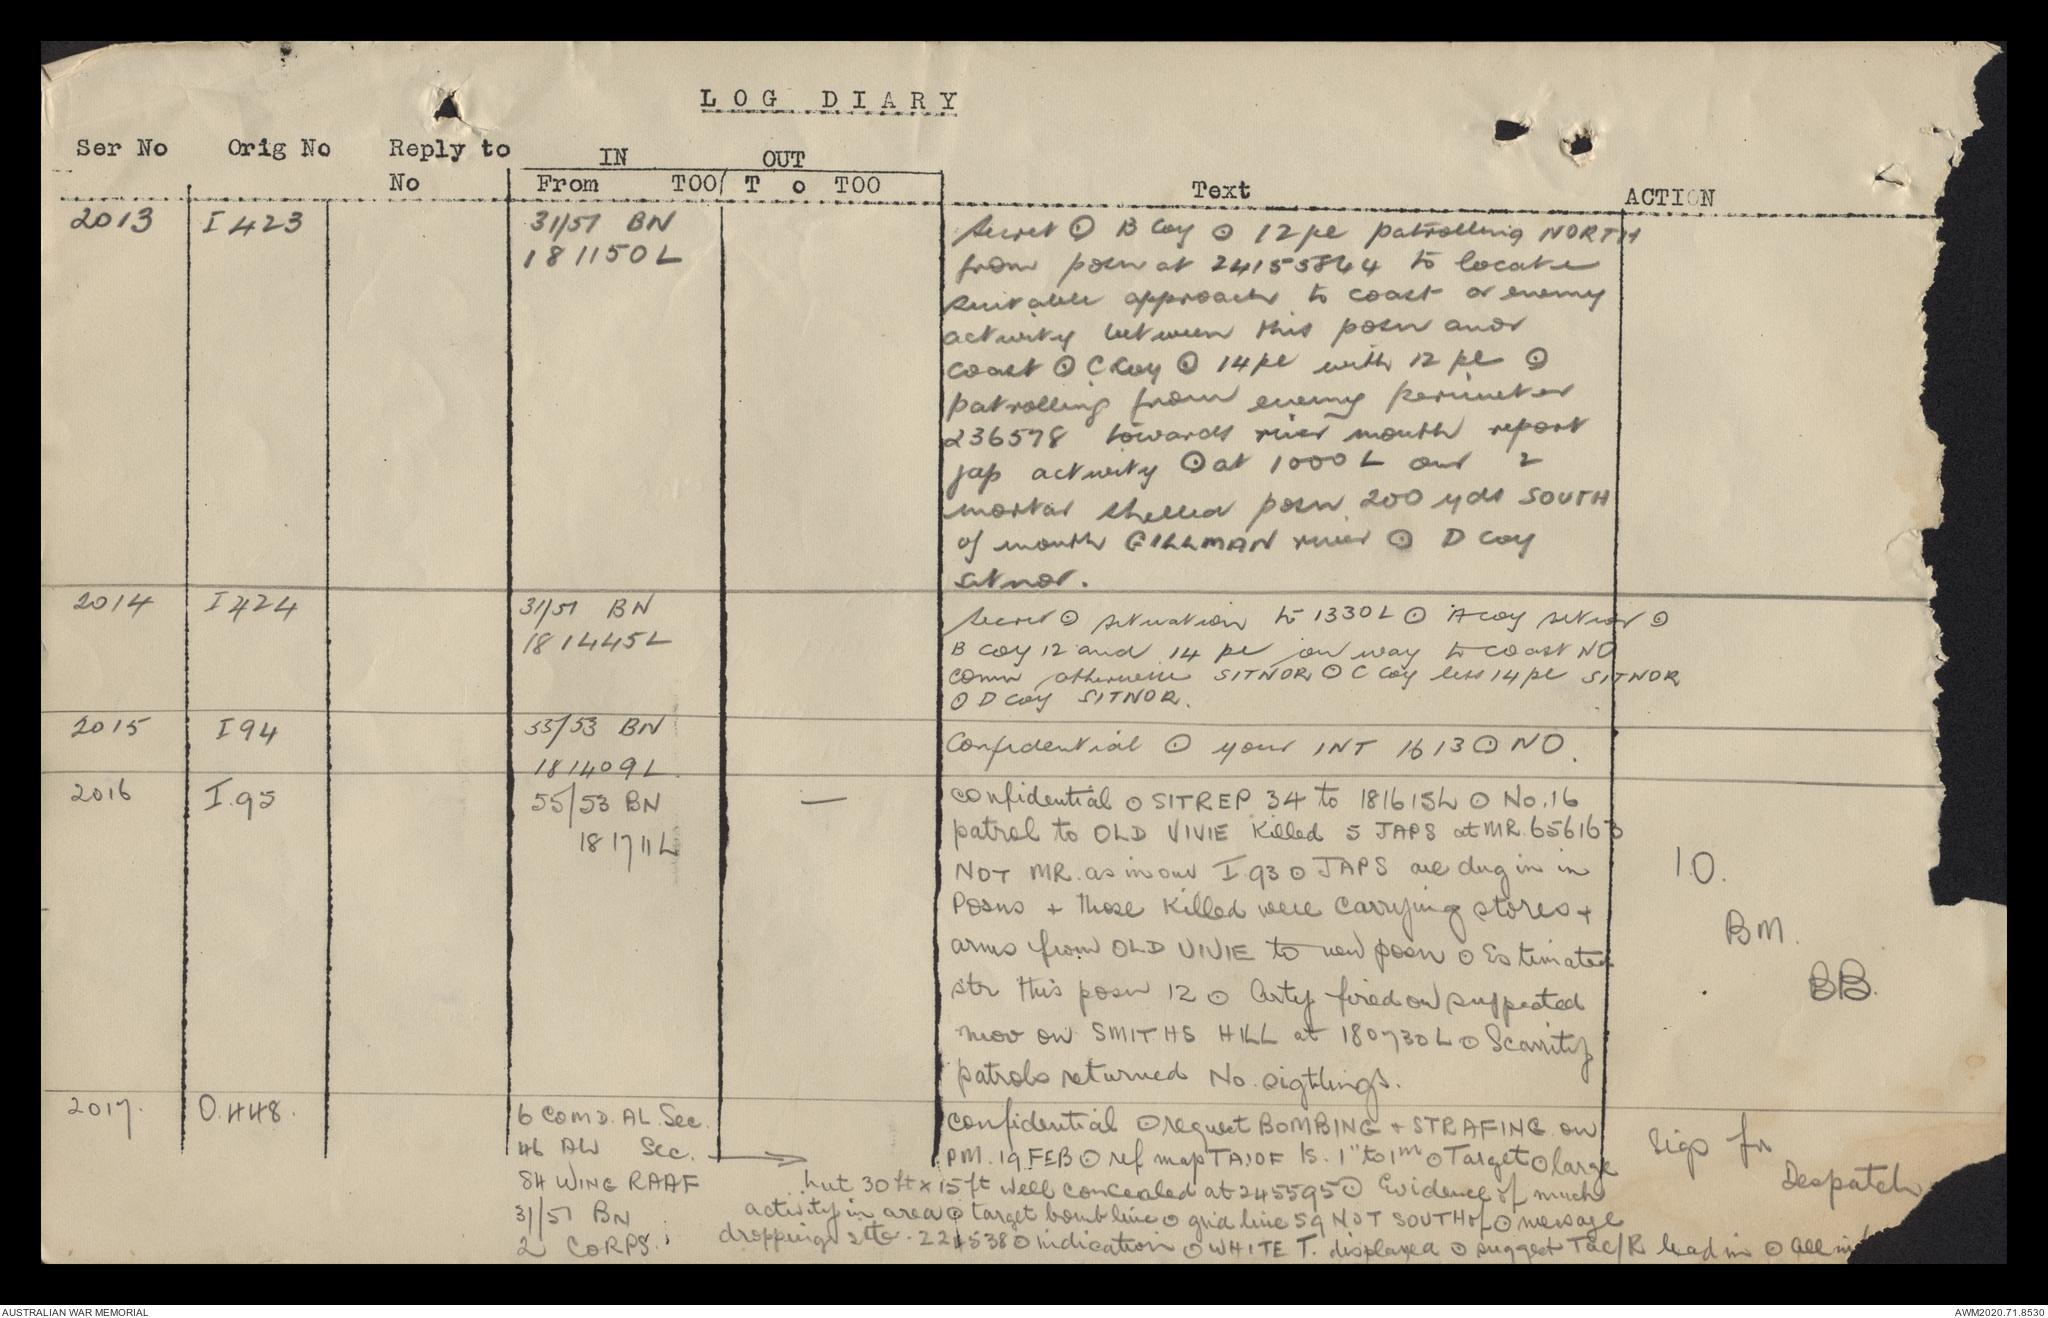 LOG DIARY
Ser No Orig No Reply to No IN OUT
From TOO To TOO Text ACTION
2013 I 423 31/51 BN
181150L
Secret ⊙ B Coy ⊙ 12 pl patrolling NORTH
from posn at 24155844 to locate
suitable approach to coast or enemy
activity between this posn and
coast ⊙ C Coy ⊙ 14 pl with 12 pl ⊙
patrolling from enemy perimeter
236578 towards river mouth report
jap activity ⊙ at 1000L our 2
mortar shelled posn 200 yds SOUTH
of mouth GILLMAN river ⊙ D Coy
sitnor.
2014 I 424 31/51 BN
181445L
Secret ⊙ situation to 1330L ⊙ A coy sitnor ⊙
B coy 12 and 14 pl on way to coast NO
comn otherwise SITNOR ⊙ C Coy less 14 pl SITNOR
⊙ D coy SITNOR.
2015 I 94 55/53 BN
181409L
Confidential ⊙ your INT 1613 ⊙ NO.
2016 I.95 55/53 BN —
181711L
Confidential ⊙ SITREP 34 to 181615L ⊙ No.16
patrol to OLD VIVIE killed 5 JAPS at MR.656163
NOT MR. as in our I.93 ⊙ JAPS are dug in in
Posns + those killed were carrying stores +
arms from OLD VIVIE to new posn ⊙ Estimated
str this posn 12 ⊙ Arty fired on suspected
mov on SMITHS HILL at 180730L ⊙ Security
patrols returned No. sigtlings.
IO.
BM.
BB.
2017. O.448. 6 COMD. AL. Sec.
46 AW Sec.
84 WING RAAF
31/51 BN
2 CORPS.
Confidential ⊙ request BOMBING + STRAFING on
PM. 19 FEB ⊙ ref map TAIOF Is. 1" to 1m ⊙ Target ⊙ large
hut 30ft x 15ft well concealed at 245595 ⊙ Evidence of much
activity in area ⊙ target bomb line ⊙ grid line 59 NOT SOUTH of ⊙ message
dropping stte. 221538 ⊙ indication ⊙ WHITE T. displayed ⊙ suggest TAC/R lead in ⊙ All
Sigs for
Despatch
AUSTRALIAN WAR MEMORIAL
AWM2020.71.8530